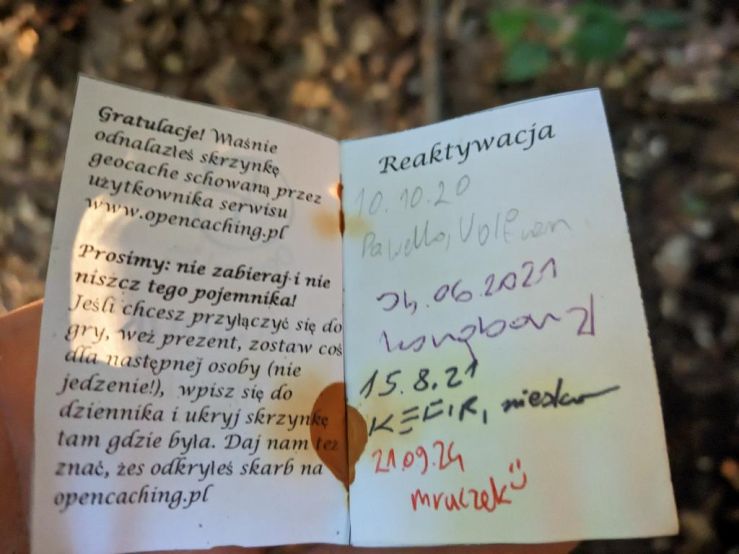 Gratulacje! Właśnie
odnalazłeś skrzynkę
geocache schowaną przez
użytkownika serwisu
www.opencaching.pl
Prosimy: nie zabieraj i nie
niszcz tego pojemnika!
Jeśli chcesz przyłączyć się do
gry, weź prezent, zostaw coś
dla następnej osoby (nie
jedzenie!), wpisz się do
dziennika i ukryj skrzynkę
tam gdzie była. Daj nam też
znać, żeś odkryłeś skarb na
opencaching.pl
Reaktywacja
10.10.20
.06.2021
15.8.21
KEFIR,
21.09.24
mruczek